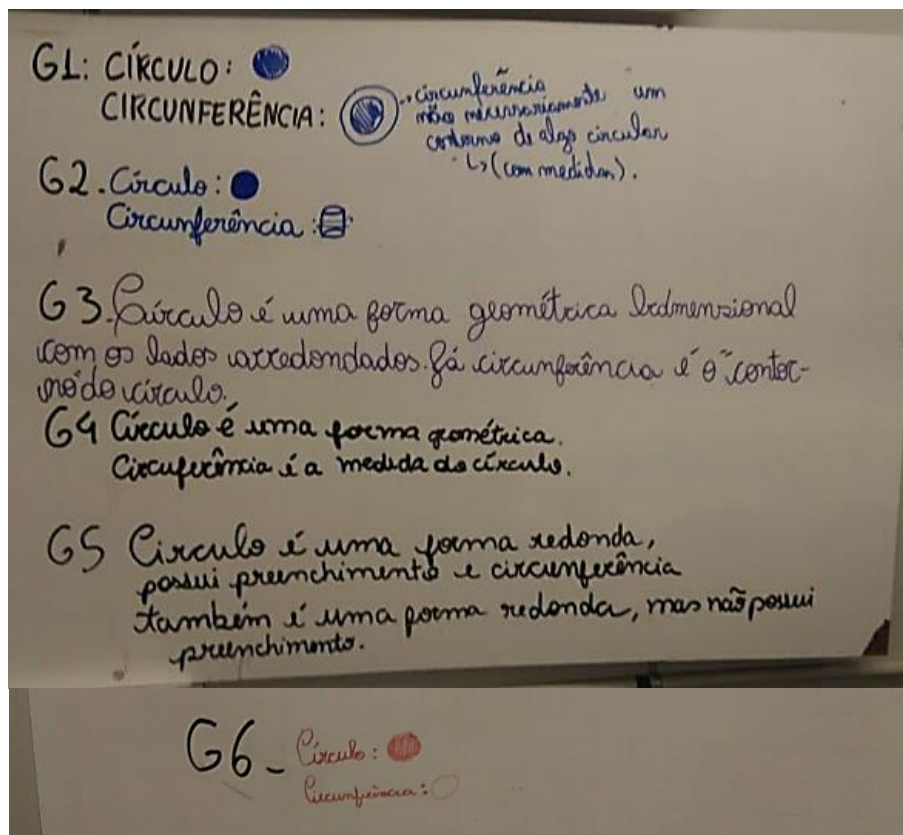 G1: CÍRCULO:
CIRCUNFERÊNCIA: → circunferência
não necessariamente um
contorno de algo circular
↳ (com medidas).
G2. Círculo:
Circunferência:
G3. Círculo é uma forma geométrica bidmensional
com os lados arredondados. Já circunferência é o "contor-
no" do círculo.
G4 Círculo é uma forma geométrica.
Circuferência é a medida do círculo.
G5 Circulo é uma forma redonda,
possui preenchimento e circunferência
também é uma forma redonda, mas não possui
preenchimento.
G6 - Círculo:
Circunferência: